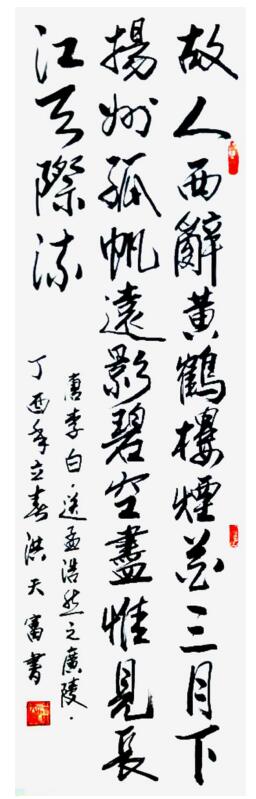 故人西辭黃鶴樓煙花三月下
揚州孤帆遠影碧空盡惟見長
江天際流
唐李白送孟浩然之廣陵
丁酉年立春洪天富書